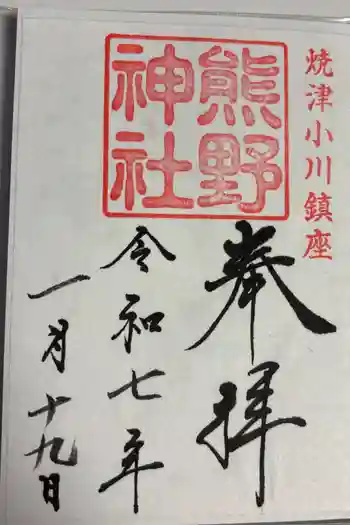 焼津小川鎮座
熊野
神社
奉拝
令和七年
一月十九日